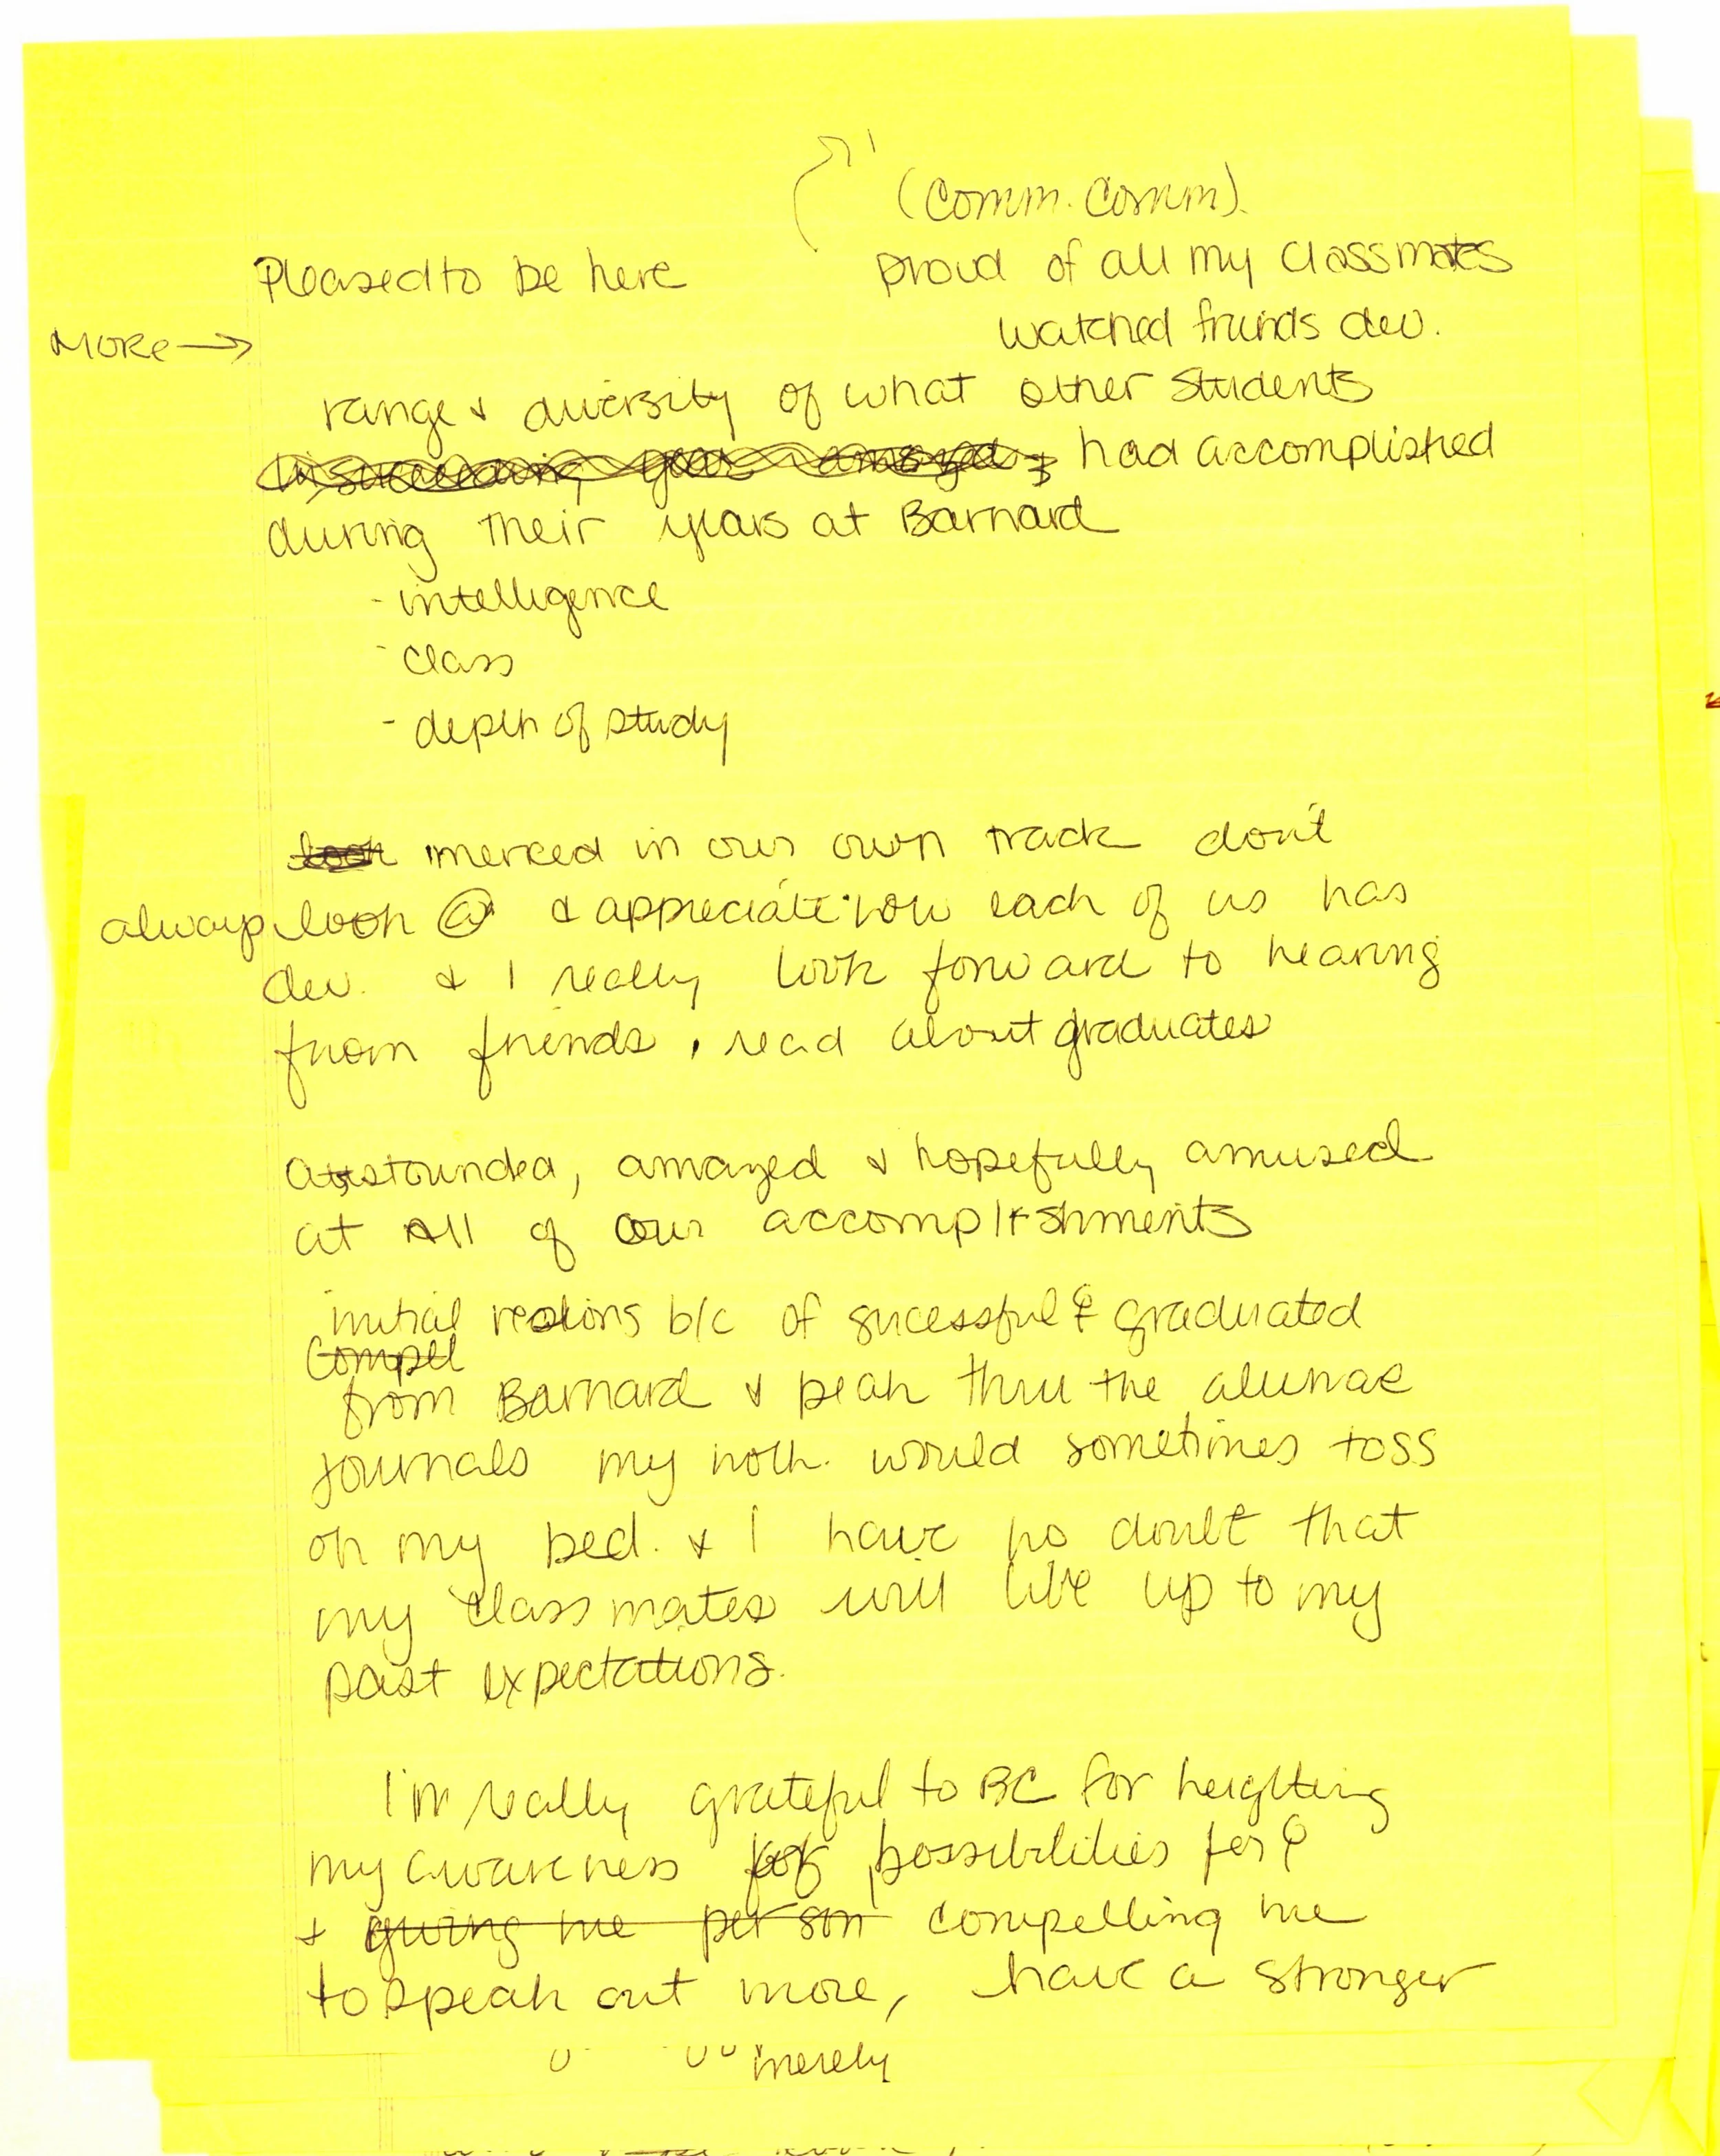 (Comm. Comm).
Pleased to be here proud of all my classmates
watched friends dev.
MORE →
range & diversity of what other students
had accomplished
during their years at Barnard
- intelligence
- class
- depth of study
look imerced in our own track don't
always look @ & appreciate how each of us has
dev. & I really look forward to hearing
from friends, read about graduates
astounded, amazed & hopefully amused
at All of our accomplishments
initial reasons b/c of sucessful ♀ graduated
Compel
from Barnard & peak thru the alunae
journals my moth. would sometimes toss
on my bed. & I have no doubt that
my classmates will live up to my
past expectations.
I'm really grateful to BC for heighting
my awareness of possibilities for ♀
& giving me per son compelling me
to speak out more, have a stronger
merely